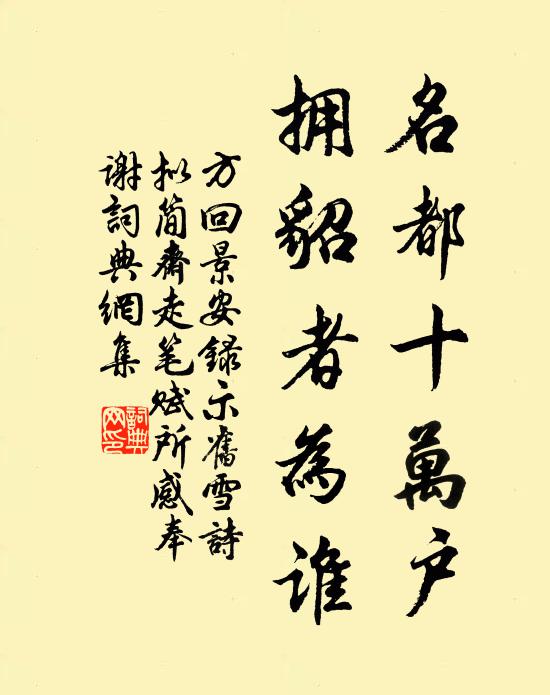 名都十萬户
拥貂者為誰
方回景安錄示舊雪詩
拟简齋走笔赋所感奉
谢詞典網集
詞典网印